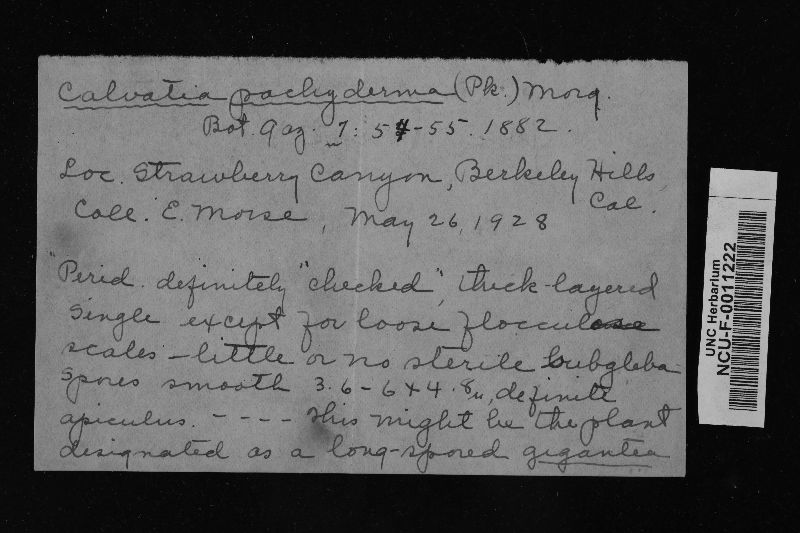 Calvatia pachyderma (Pk.) Morg.
Bot. Gaz. 7: 54-55. 1882.
Loc. Strawberry Canyon, Berkeley Hills,
Cal.
Coll. E. Morse, May 26, 1928
"Perid. definitely "checked", thick-layered
single except for loose floccul ose
scales - little or no sterile subgleba
Spores smooth 3.6-6 x 4.8µ, definite
apiculus. - - - - This might be the plant
designated as a long-spored gigantea
UNC Herbarium
NCU-F-0011222